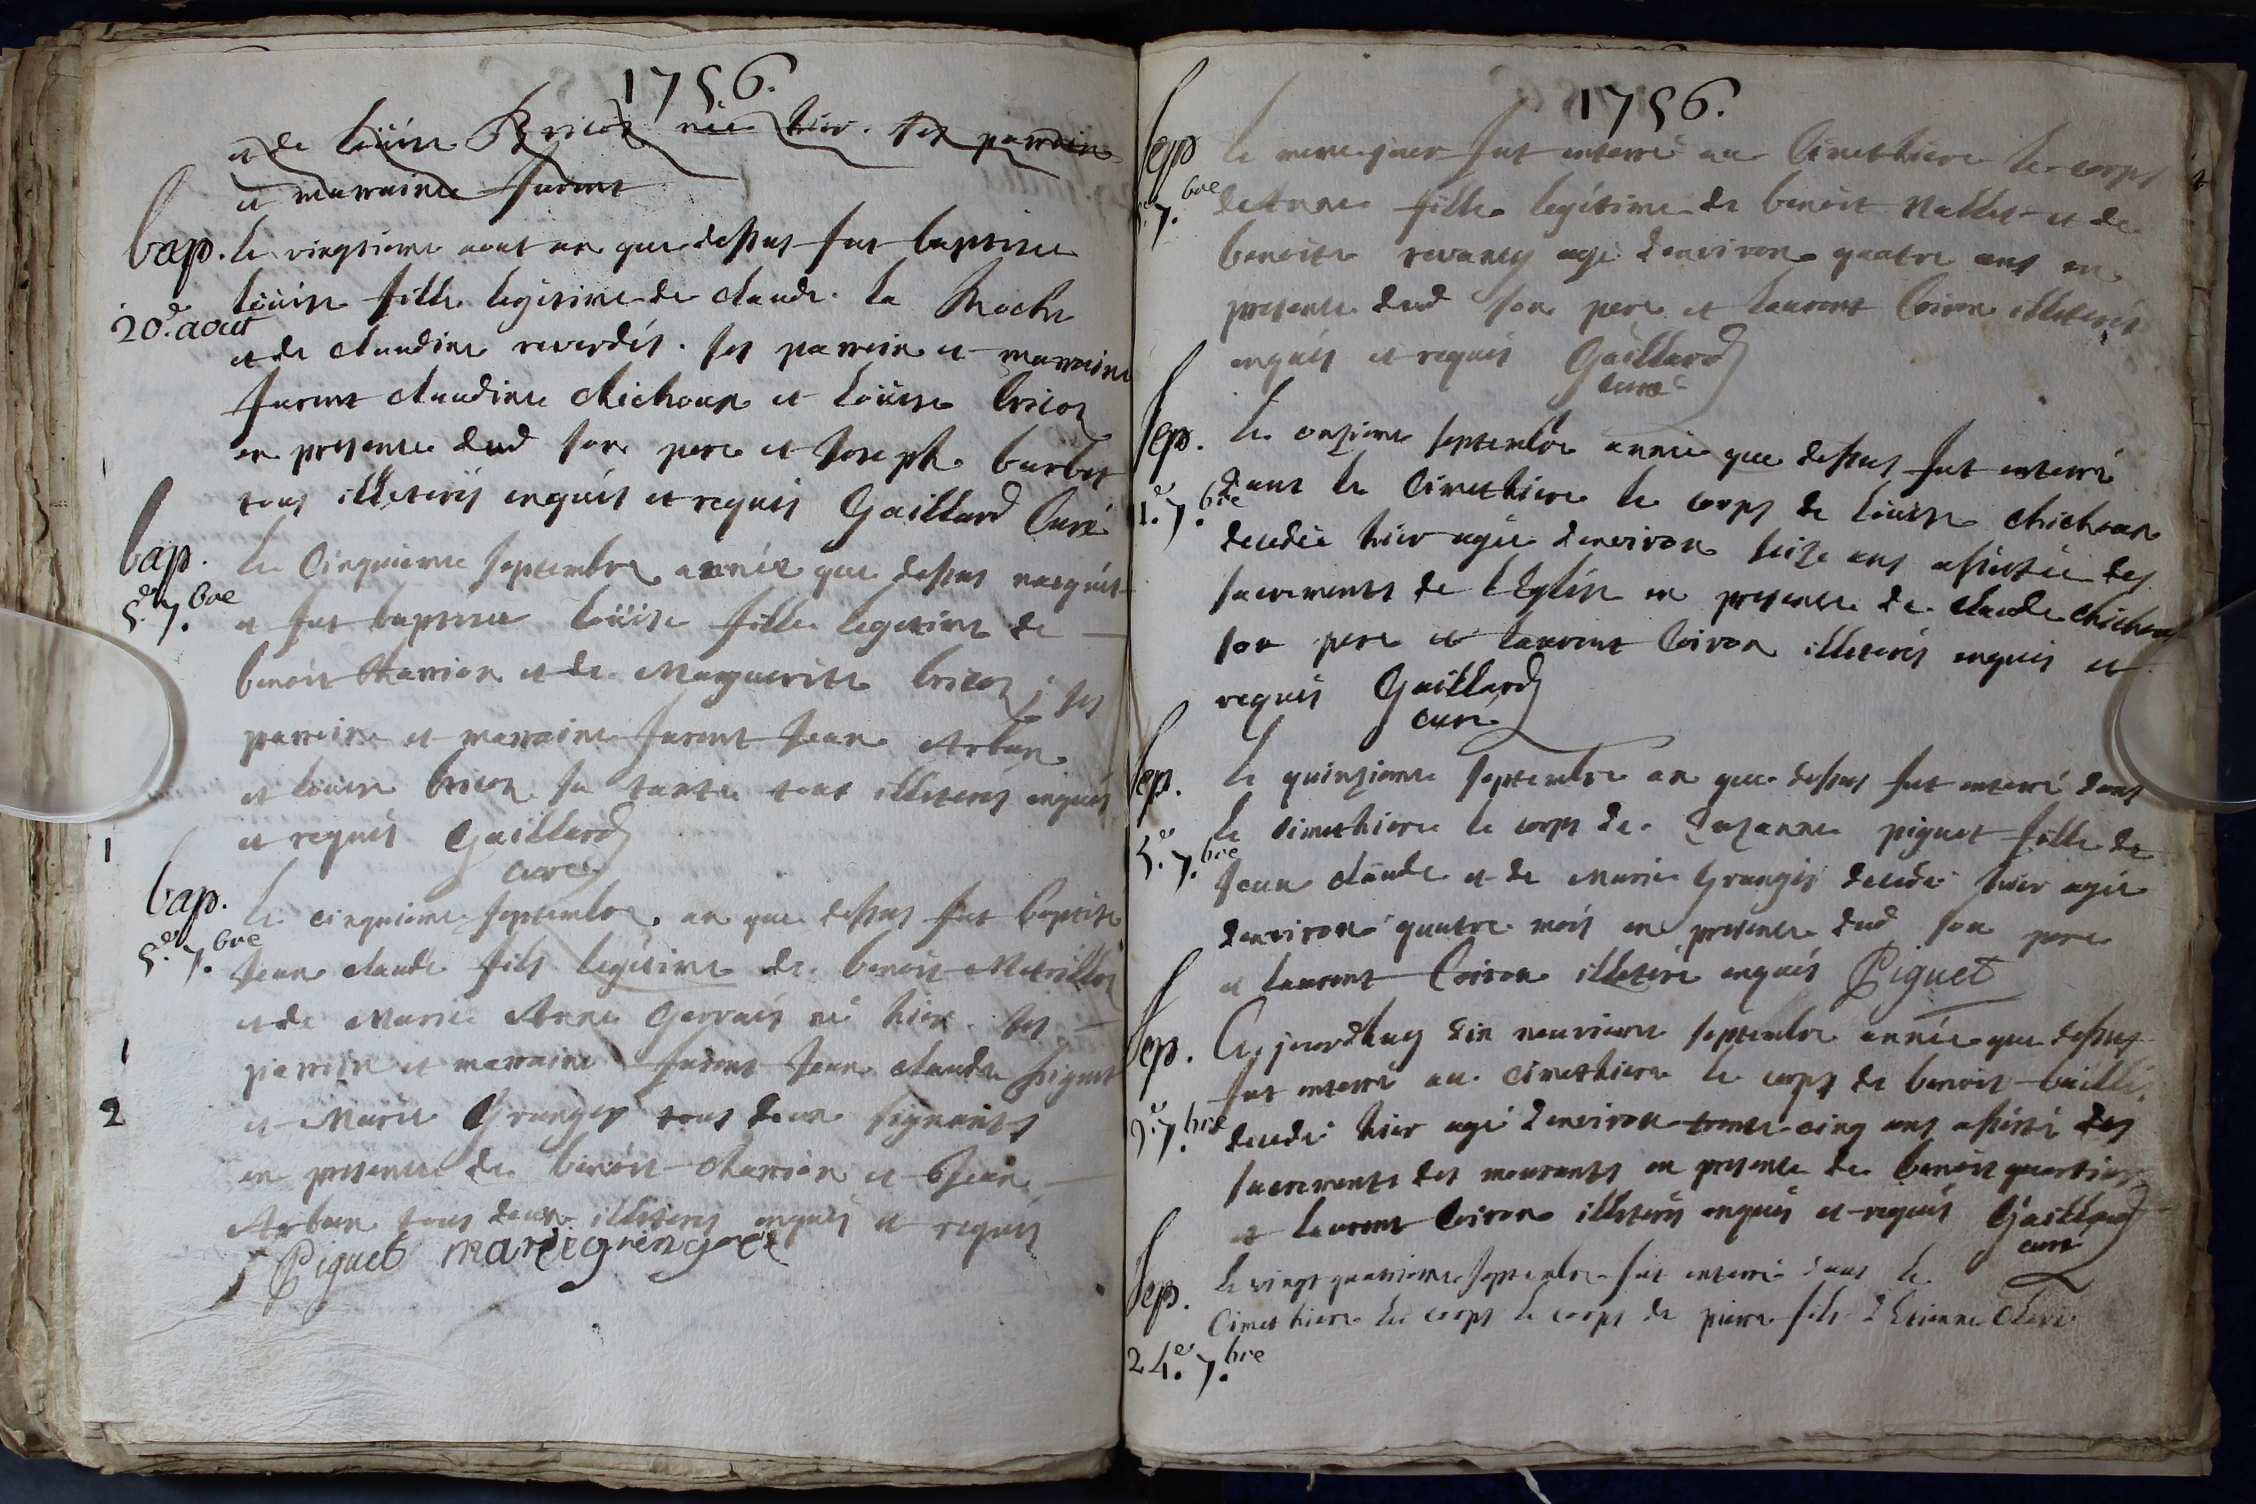 1756.
et de Loüise Bricod née hier. ses parrain
et marraine furent
bap. le vingtieme aout an que dessus fut baptisee
20.e aout
Loüise fille legitime de claude la Roche
et de claudine reverdés. ses parrein et marraine
furent claudine chichoux et Loüise bricod
en presence dud son pere et Joseph burlet
tous illeterés enquis et requis Gaillard Curé
bap. Le Cinquieme septembre année que dessus naequit
5.e 7.bre
et fut baptisee Loüise fille legitime de
benoit charrion et de Marguerite bricod; ses
parrein et marraine furent Jean
et Loüise bricod sa tante tous illeterés enquis
et requis Gaillard
curé
1
bap. le cinquieme septembre an que dessus fut baptisé
5.e 7.bre
Jean claude fils legitime de benoit
et de Marie Anne Gervais né hier. ses
1
parrein et marraine furent Jean claude piguet
2
et Marie Granger tous deux signants
en presence de benoit charrion et Jean
tous deux illeterés enquis et requis
Piguet marie grengere
1756.
sep. le meme jour fut enterré au Cimethiere le corps
5.e 7.bre
de Anne fille legitime de benoit Nallet et de
benoite agé denviron quatre ans en
presence dud son pere et laurent Coiron illeterés
enquis et requis Gaillard
curé
sep. Le onzieme septembre année que dessus fut enterré
1.e 7.bre
dans le Cimethiere le corps de Loüise chichoux
decedée hier agée denviron seize ans assistée des
sacrements de l'Eglise en presence de claude chichoux
son pere et laurent Coiron illeterés enquis et
requis Gaillard
curé
sep. le quinzieme septembre an que dessus fut enterré dans
5.e 7.bre
le cimethiere le corps de Suzanne piguet fille de
Jean claude et de Marie Granger decedé hier agée
denviron quatre mois en presence dud son pere
et laurent Coiron illeteré enquis Piguet
sep. Ce jourdhuy dix neuvieme septembre année que dessus
9.e 7.bre
fut enterré au cimethiere le corps de benoit baillé
decedé hier agé denviron trente cinq ans assisté des
sacrements des mourants en presence de benoit quartier
et laurent Coiron illeterés enquis et requis Gaillard
curé
sep. le vingt quatrieme septembre fut enterré dans le
Cimethiere le corps le corps de pierre fils d'Etienne
24.e 7.bre